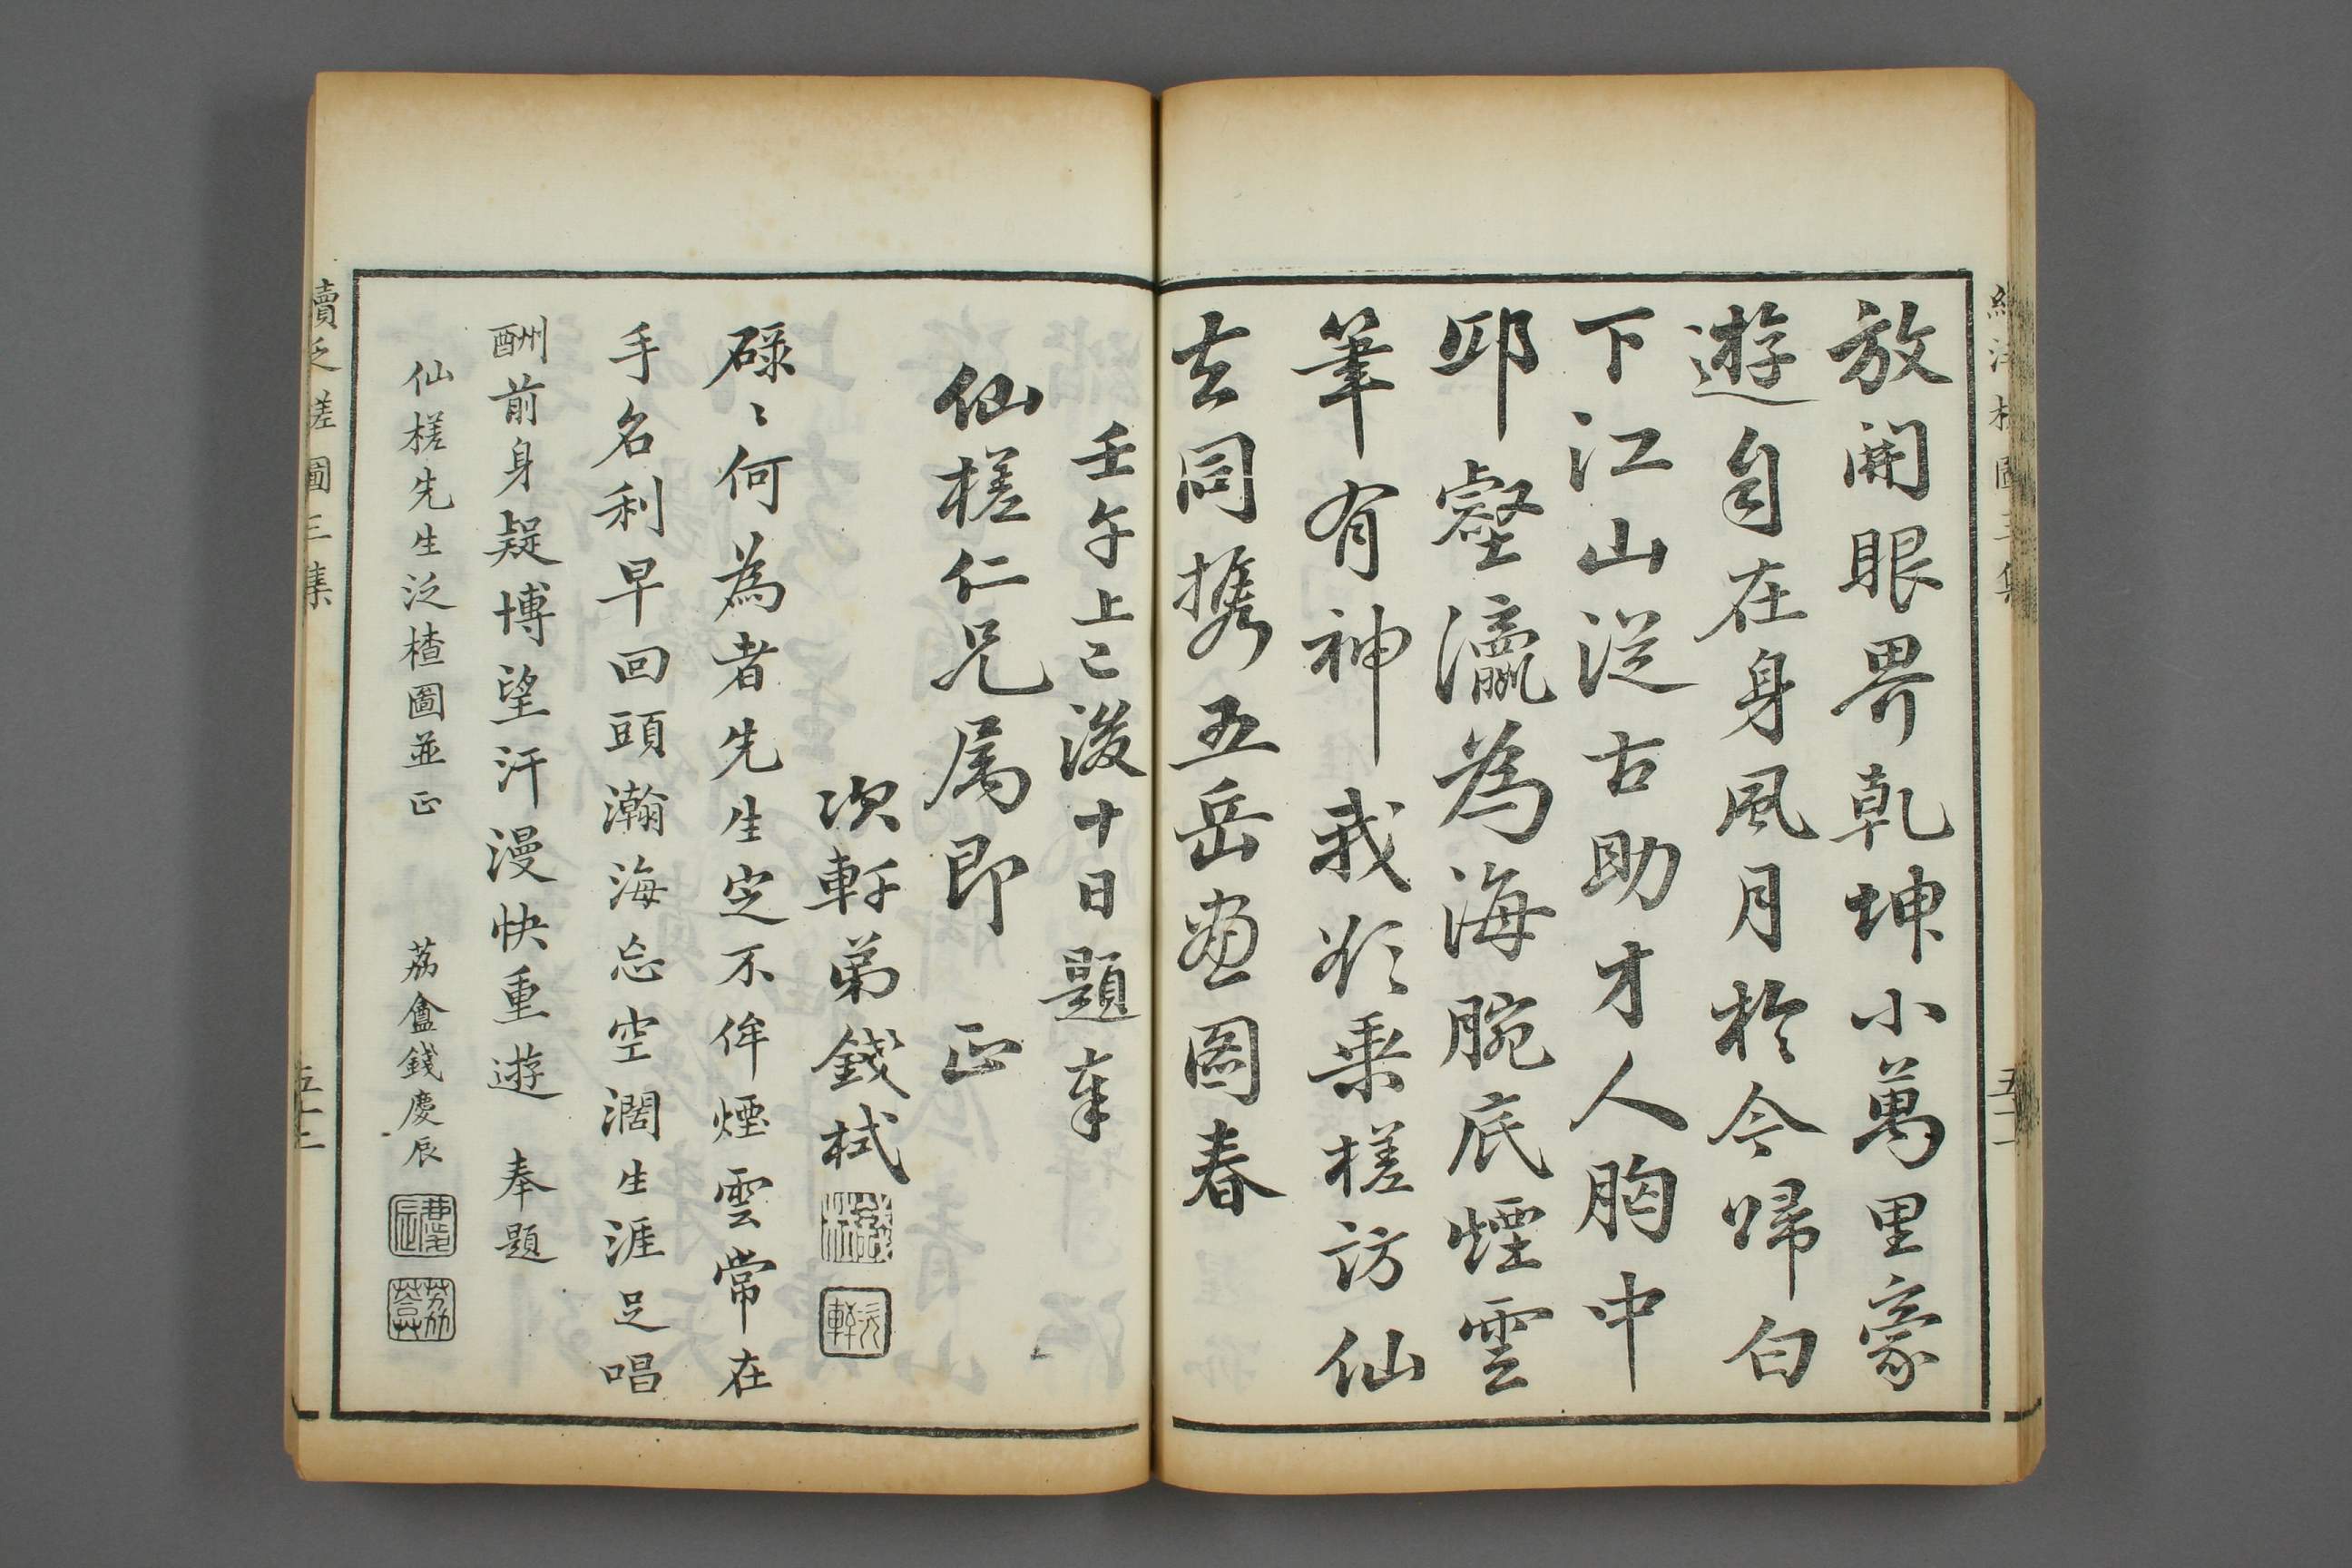 放開眼界乾坤小萬里豪
遊自在身風月於今歸白
下江山從古助才人胸中
邱壑瀛為海腕底煙雲
筆有神我欲乘槎訪仙
去同携五岳畫圖春
壬午上巳後十日題奉
仙槎仁兄属即 正
次軒弟錢栻
碌〻何為者先生定不侔煙雲常在
手名利早回頭瀚海忘空濶生涯足唱
酬前身疑博望汗漫快重遊 奉題
仙槎先生泛楂圖並正 荔盦錢慶辰
續泛槎圖三集